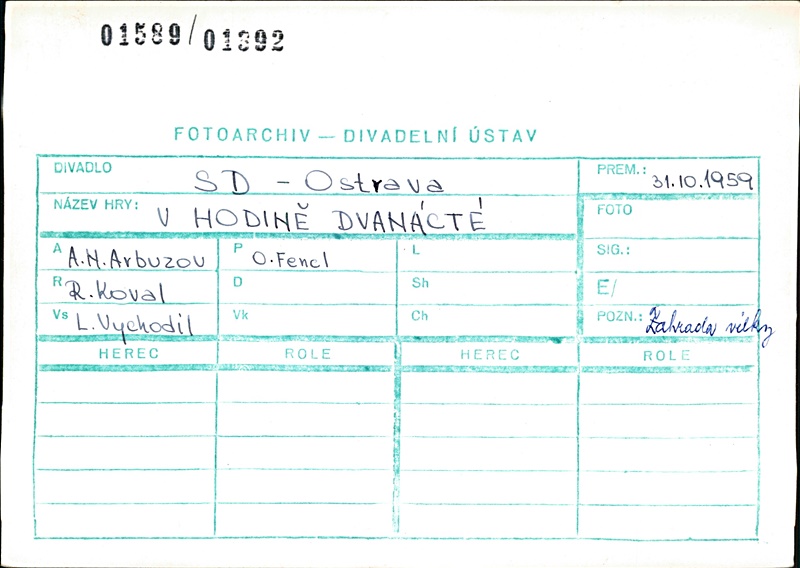 01589/01892
FOTOARCHIV — DIVADELNÍ ÚSTAV
DIVADLO SD - Ostrava PREM.: 31.10.1959
NÁZEV HRY: V HODINĚ DVANÁCTÉ FOTO
A A.N.Arbuzov P O.Fencl L SIG.:
R R.Koval D Sh E/
Vs L.Vychodil Vk Ch POZN.: Zahrada
HEREC ROLE HEREC ROLE